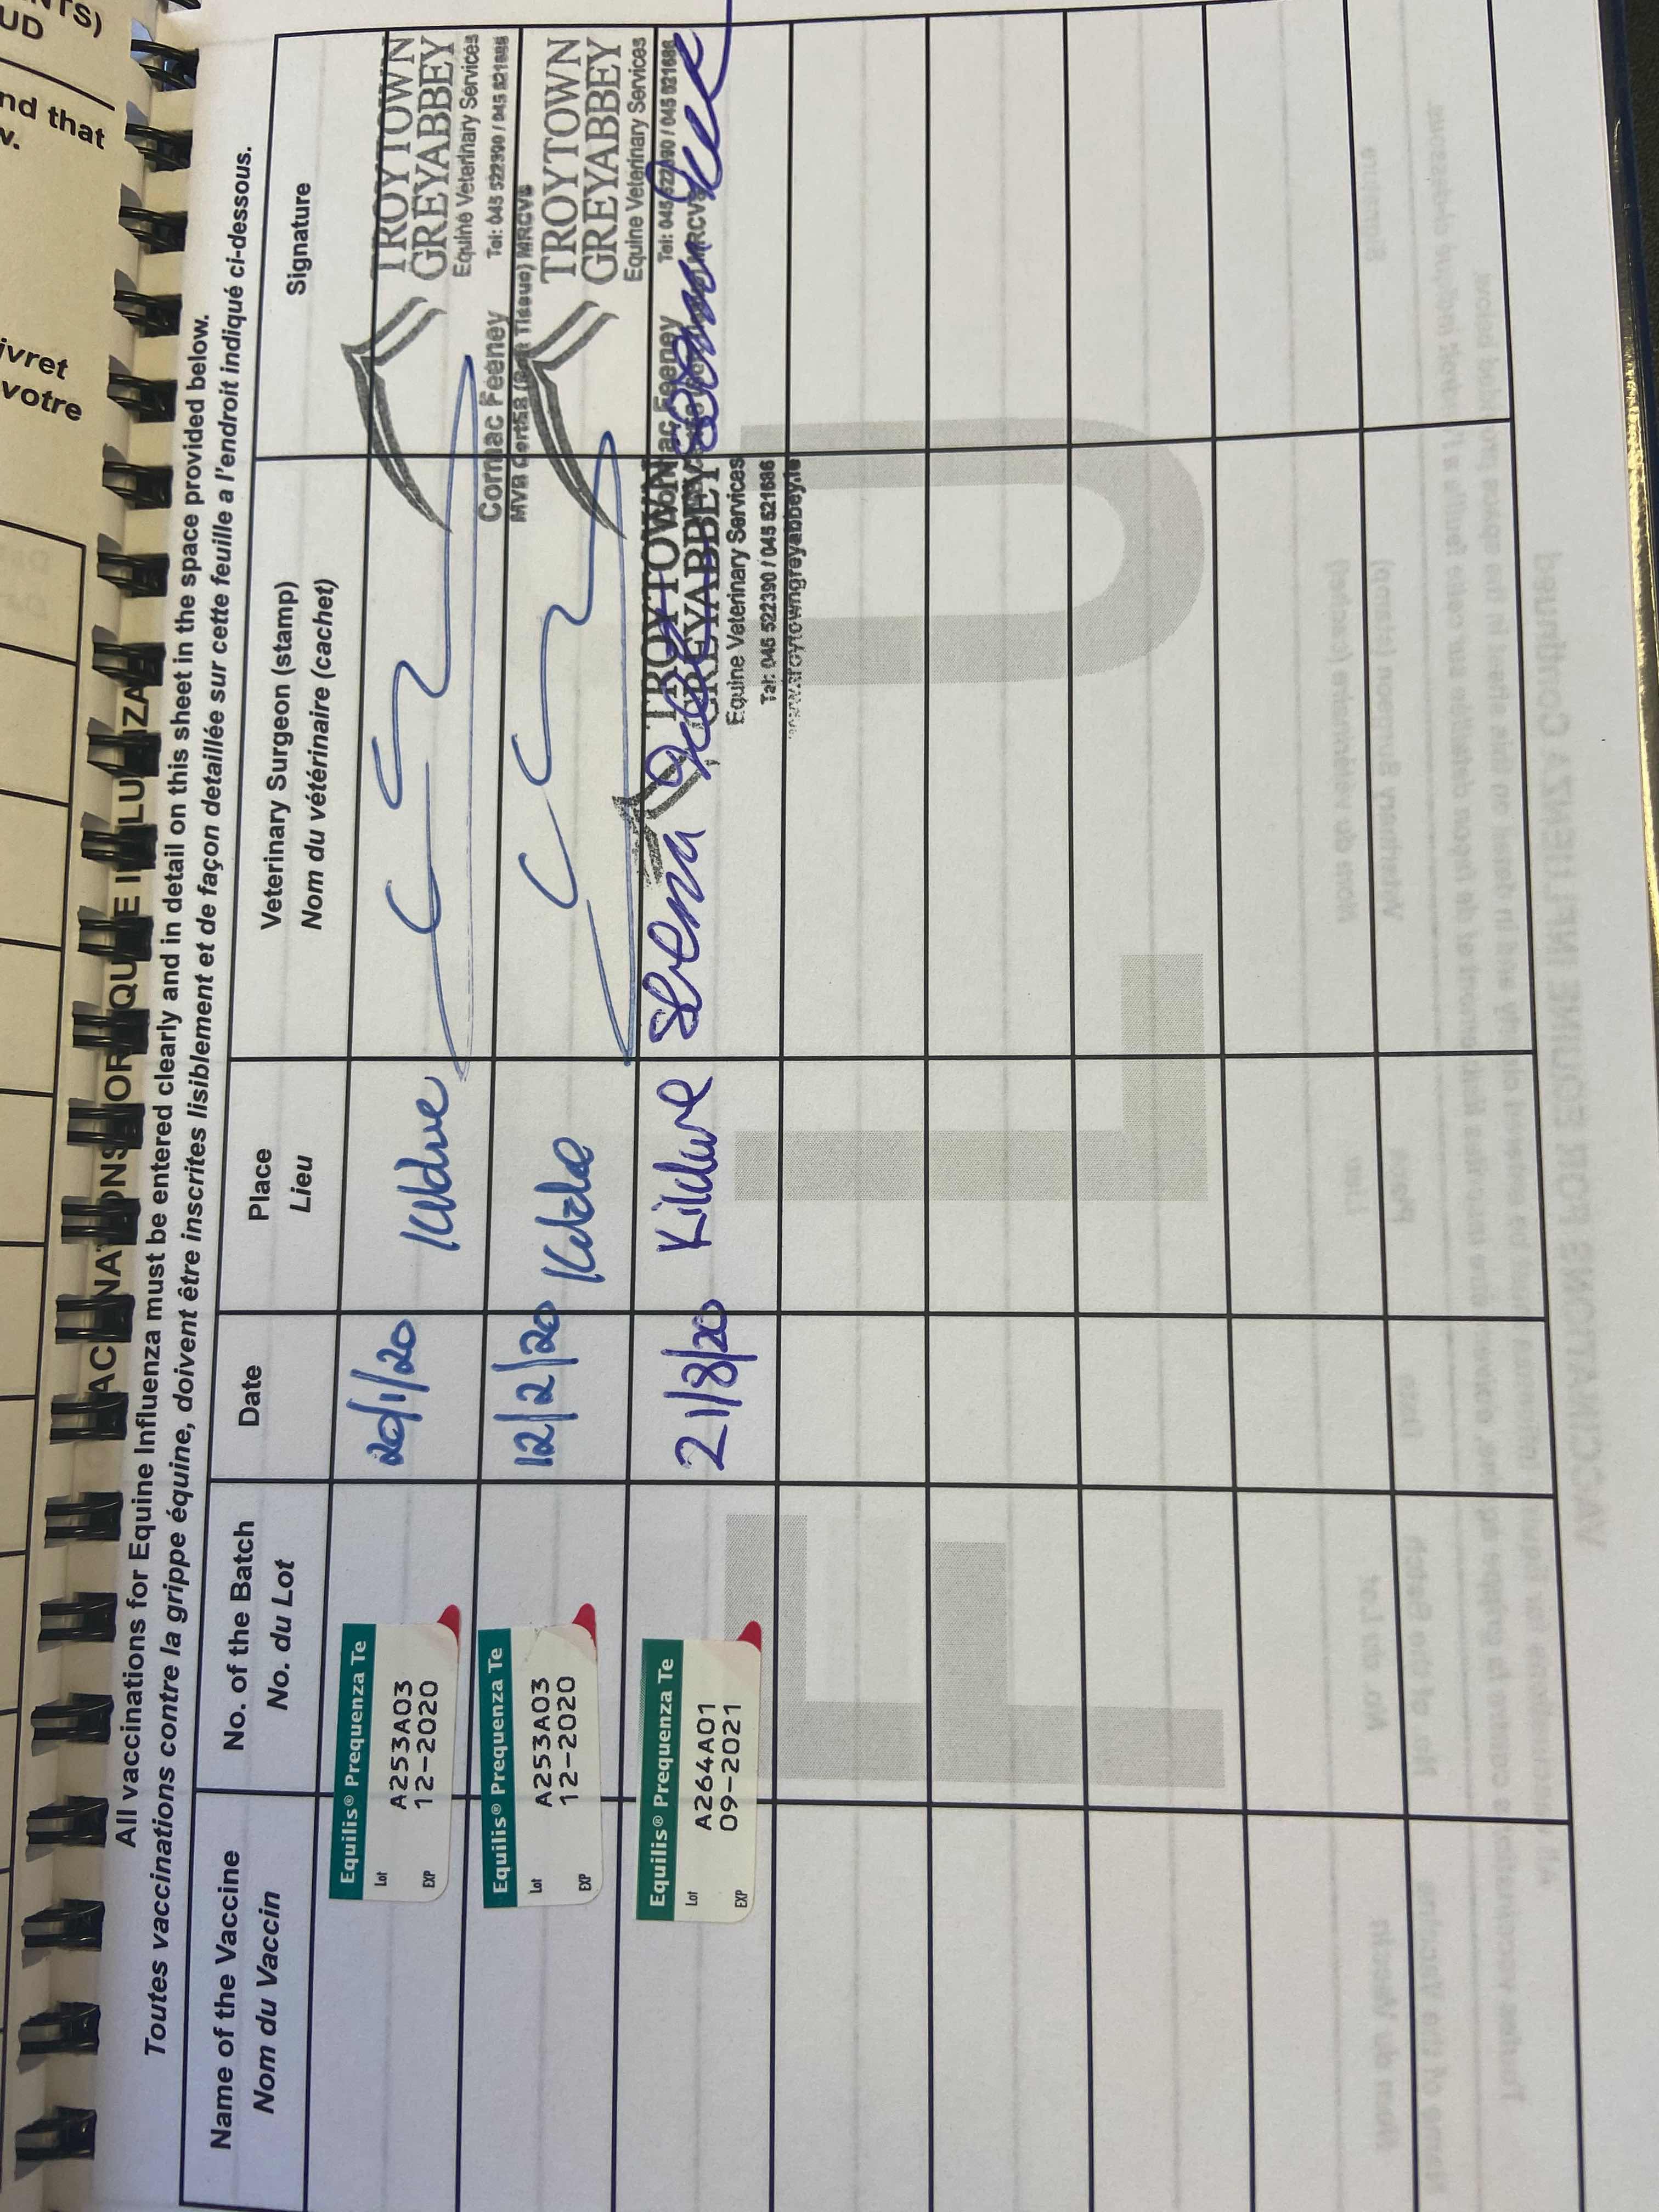 VACCINATIONS FOR EQUINE INFLUENZA
All vaccinations for Equine Influenza must be entered clearly and in detail on this sheet in the space provided below.
Toutes vaccinations contre la grippe équine, doivent être inscrites lisiblement et de façon detaillée sur cette feuille a l'endroit indiqué ci-dessous.
Name of the Vaccine
Nom du Vaccin
No. of the Batch
No. du Lot
Date
Place
Lieu
Veterinary Surgeon (stamp)
Nom du vétérinaire (cachet)
Signature
Equilis® Prequenza Te
Lot A253A03
EXP 12-2020
20/1/20
Kildare
TROYTOWN
GREYABBEY
Equine Veterinary Services
Tel: 045 522390 / 045 521686
Cormac Feeney
MVB CertSR (Soft Tissue) MRCVS
Equilis® Prequenza Te
Lot A253A03
EXP 12-2020
12/2/20
Kildare
TROYTOWN
GREYABBEY
Equine Veterinary Services
Tel: 045 522390 / 045 521686
Cormac Feeney
MRCVS
Equilis® Prequenza Te
Lot A264A01
EXP 09-2021
21/8/20
Kildare
TROYTOWN
GREYABBEY
Equine Veterinary Services
Tel: 045 522390 / 045 521686
www.troytowngreyabbey.ie
NTS)
UD
nd that
w.
ivret
votre